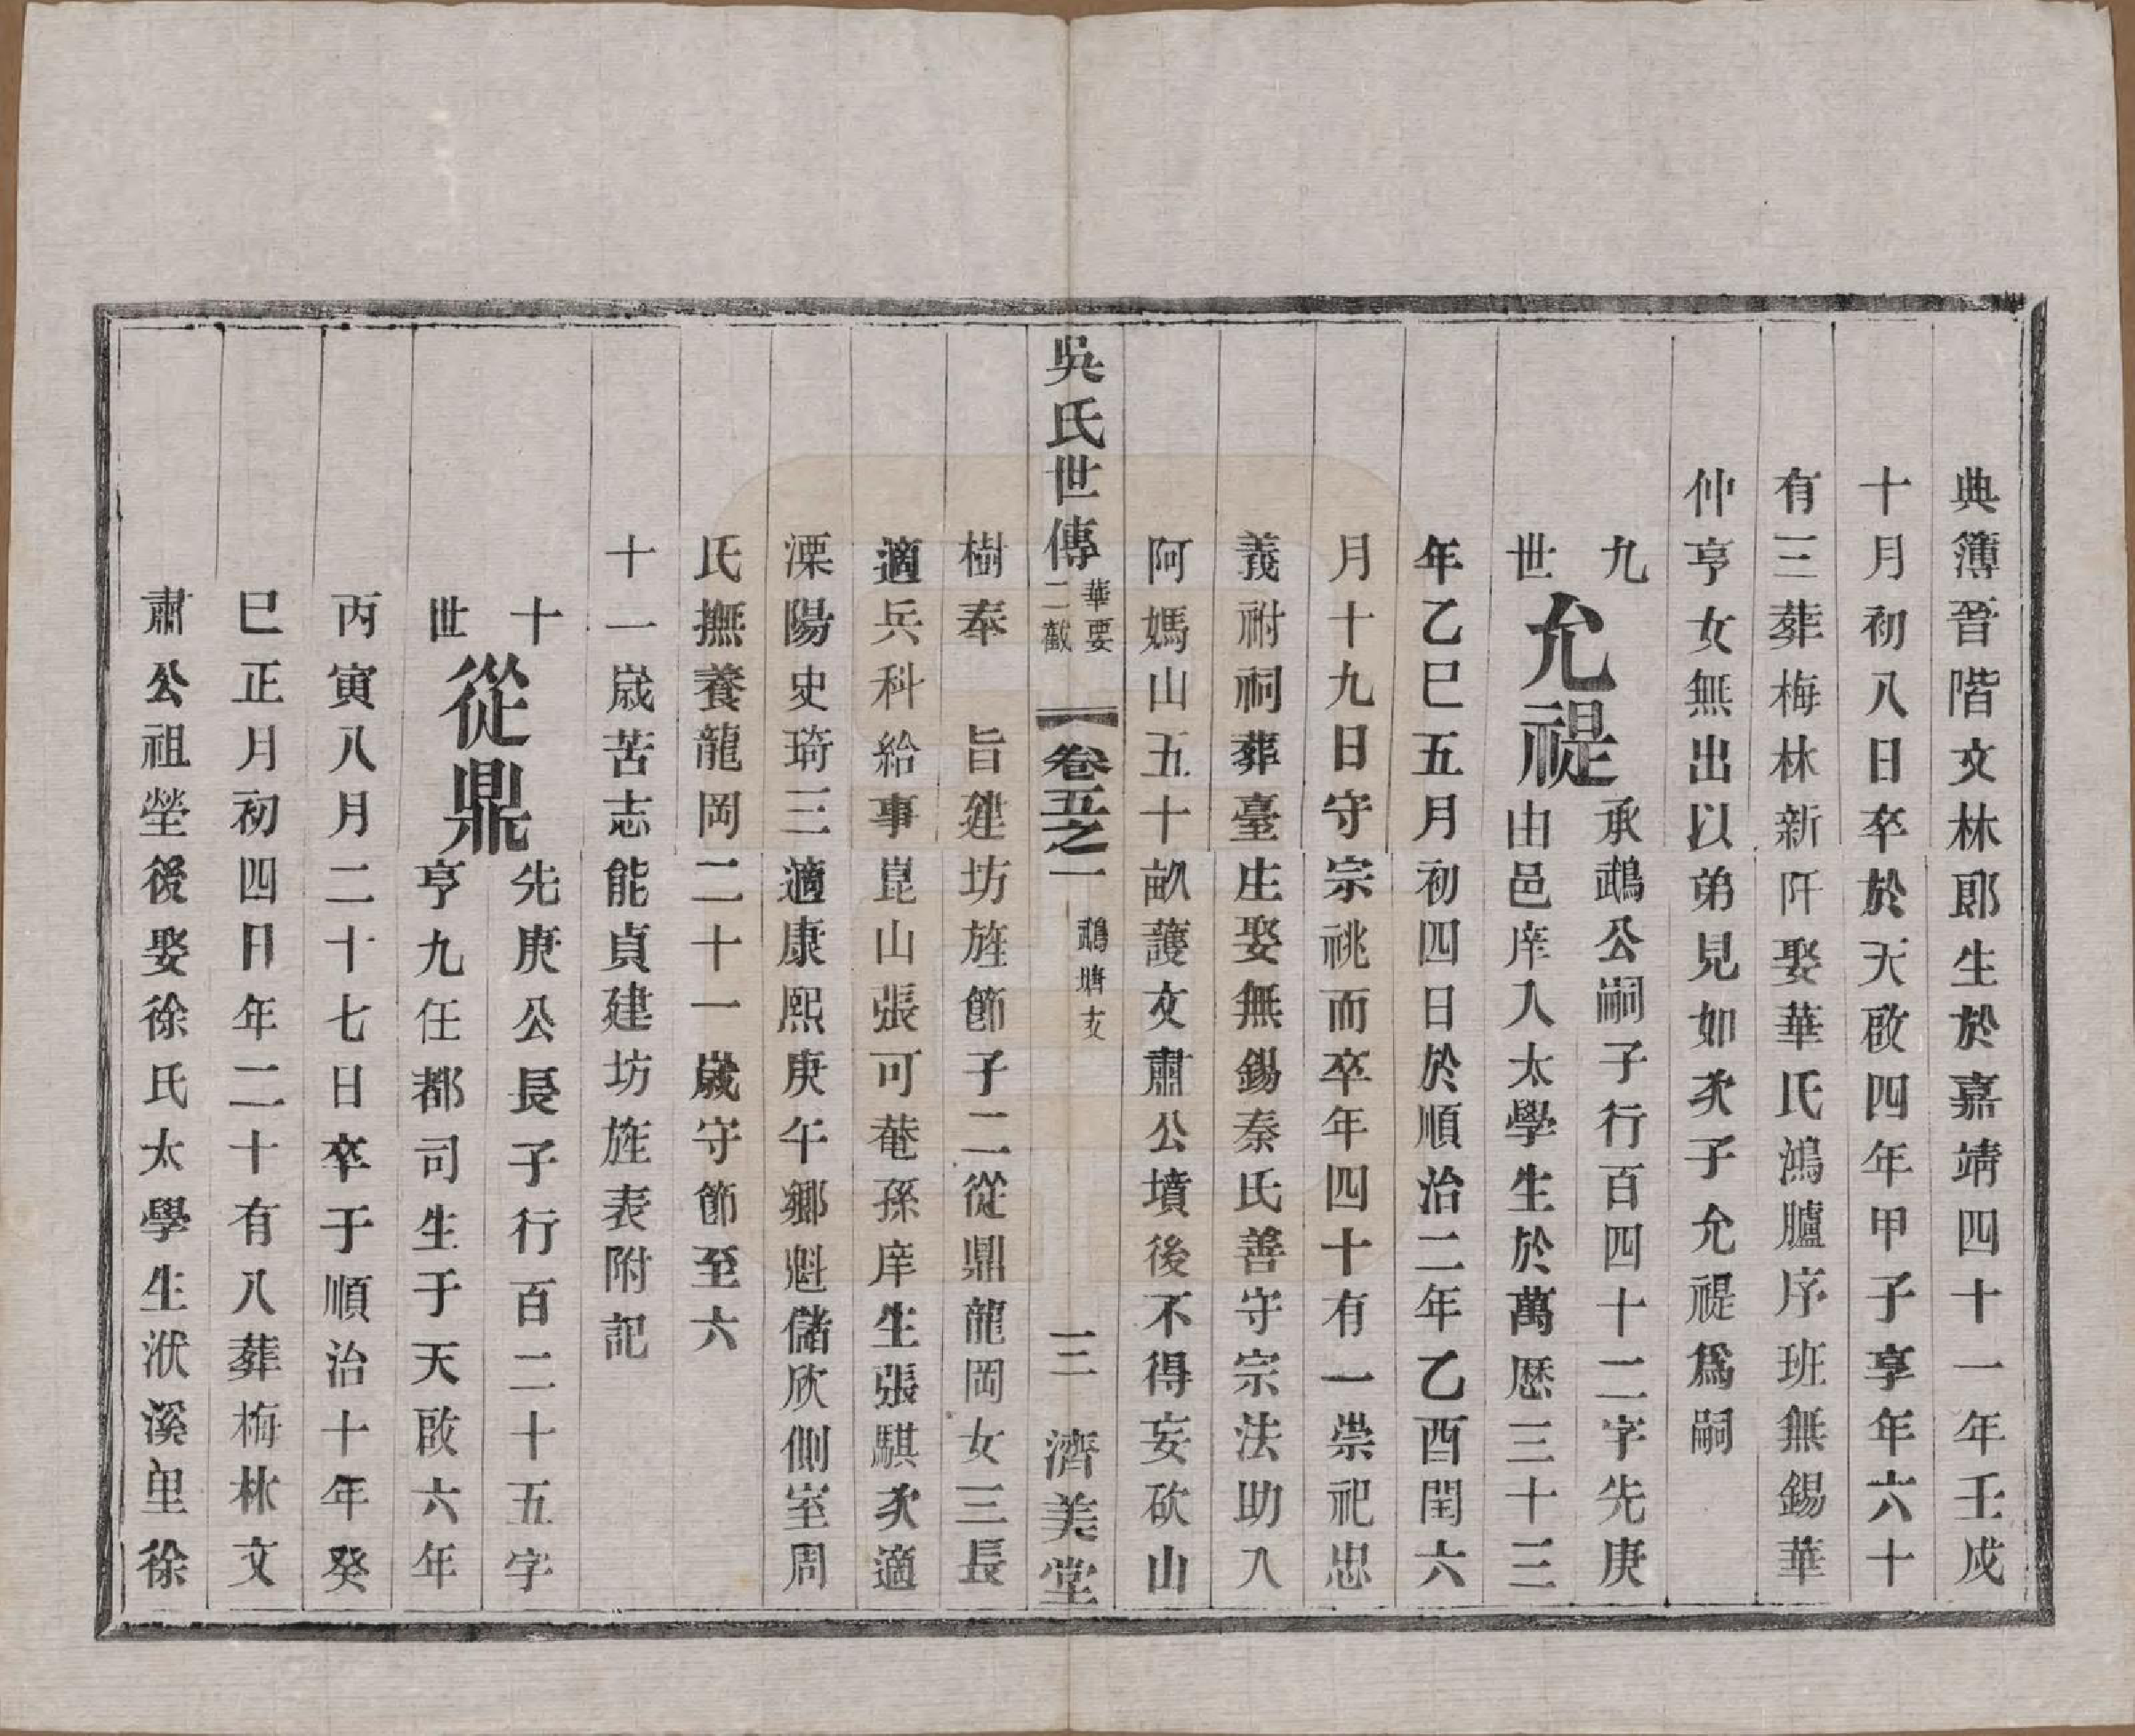 典簿晉階文林郎生於嘉靖四十一年壬戌
十月初八日卒於天啟四年甲子享年六十
有三葬梅林新阡娶華氏鴻臚序班無錫華
仲亨女無出以弟見如次子允禔爲嗣
九世
允禔
承鵡公嗣子行百四十二字先庚
由邑庠入太學生於萬歷三十三
年乙巳五月初四日於順治二年乙酉閏六
月十九日守宗祧而卒年四十有一崇祀忠
義祔祠葬臺庄娶無錫秦氏善守宗法助入
阿媽山五十畝護文肅公墳後不得妄砍山
吳氏世傳
華要
二截
卷五之一
鵡塘支
三
濟美堂
樹奉 旨建坊旌節子二從鼎龍岡女三長
適兵科給事崑山張可菴孫庠生張騏次適
溧陽史琦三適康熙庚午鄉魁儲欣側室周
氏撫養龍岡二十一歲守節至六
十一歲苦志能貞建坊旌表附記
十世
從鼎
先庚公長子行百二十五字
亨九任都司生于天啟六年
丙寅八月二十七日卒于順治十年癸
巳正月初四日年二十有八葬梅林文
肅公祖塋後娶徐氏太學生洑溪里徐